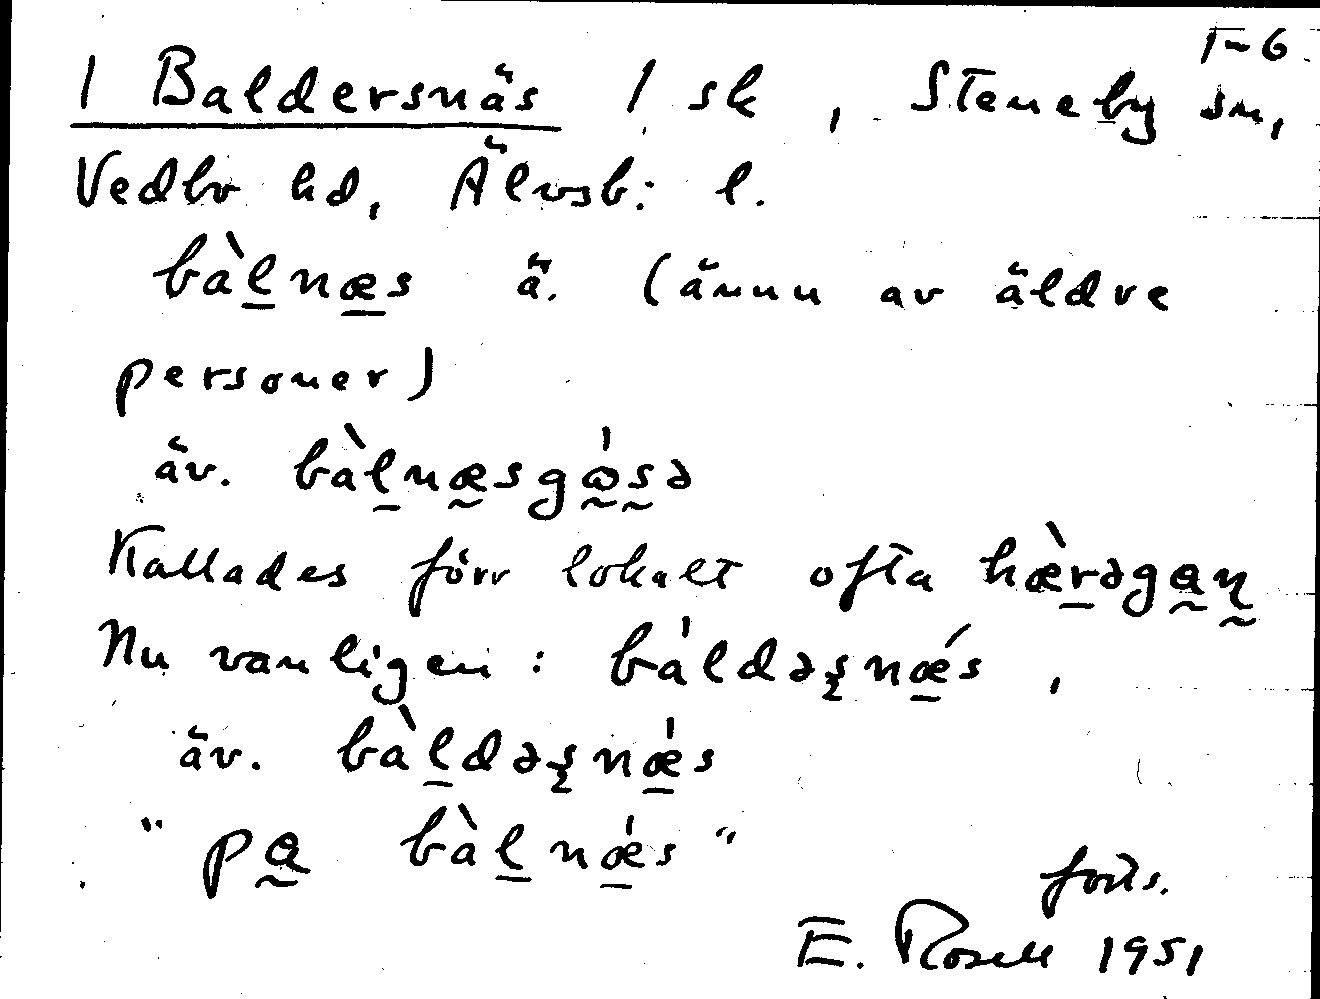 1-6
1 Baldersnäs 1 sk, Steneby sn,
Vedbo hd, Älvsb: l.
bàl̠næ̠s ä. (ännu av äldre
personer)
äv. bàl̠næ̰sgɷ̰́s̰ə
Kallades förr lokalt ofta hæ̀r̠əga̰ɳ̰
Nu vanligen: báldəʂnǽ̠s,
äv. bàl̠dəʂnǽ̠s
"pa̰ bàl̠nǽ̠s"
forts.
E. Rosell 1951